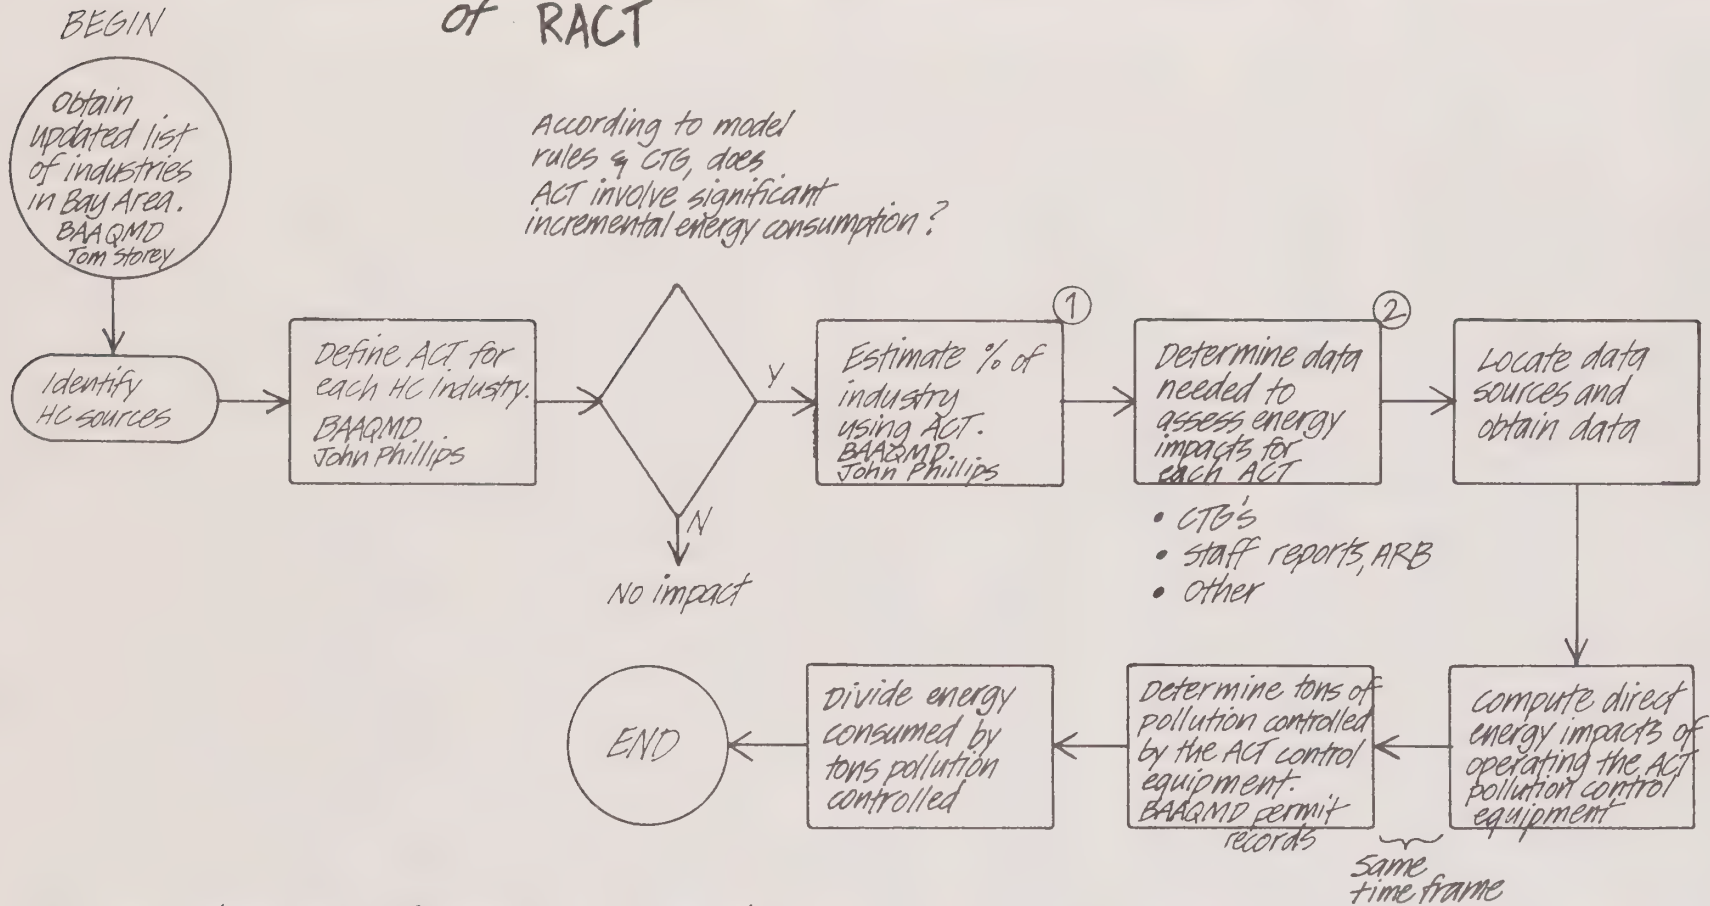 of RACT
BEGIN
Obtain
updated list
of industries
in Bay Area.
BAAQMD
Tom Storey
According to model
rules & CTG, does
ACT involve significant
incremental energy consumption?
Identify
HC sources
Define ACT for
each HC industry.
BAAQMD
John Phillips
Y
N
No impact
1
Estimate % of
industry
using ACT.
BAAQMD.
John Phillips
2
Determine data
needed to
assess energy
impacts for
each ACT
• CTG's
• Staff reports, ARB
• Other
Locate data
sources and
obtain data
Compute direct
energy impacts of
operating the ACT
pollution control
equipment
Same
time frame
Determine tons of
pollution controlled
by the ACT control
equipment.
BAAQMD permit
records
Divide energy
consumed by
tons pollution
controlled
END